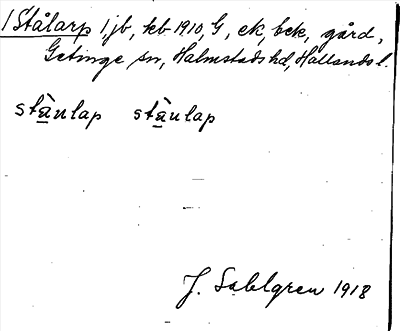 /Stålarp 1, jb, kb 1910, G, ek, bck, gård,
Getinge sn, Halmstads hd, Hallands l.
stànlap stànlap
J. Sahlgren 1918